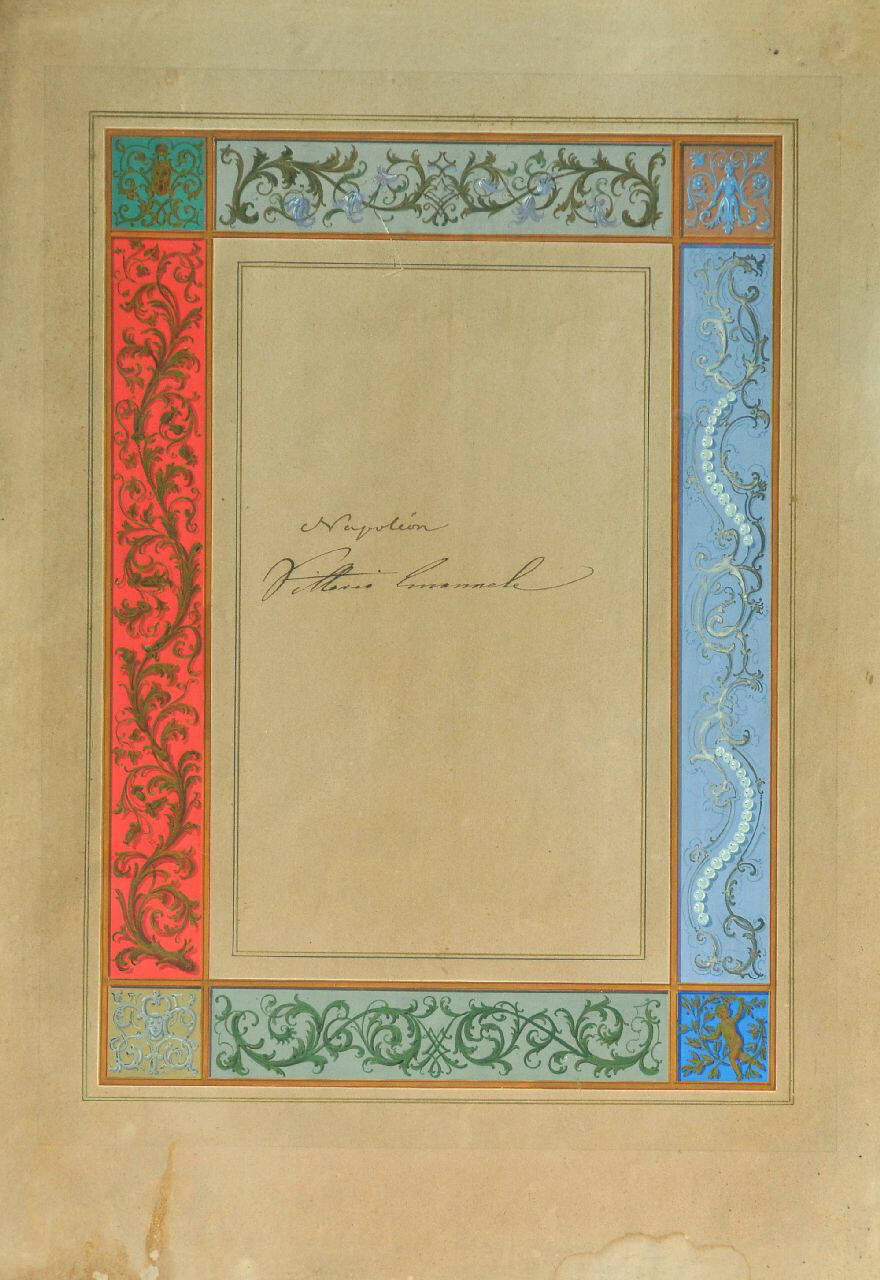 Napoléon
Vittorio Emanuele